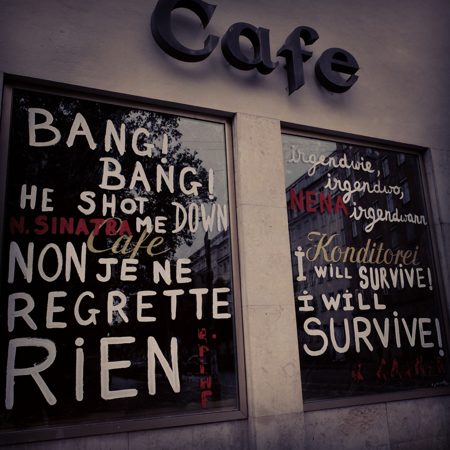 Cafe
BANG!
BANG!
HE SHOT
N. SINATRA ME DOWN
Cafe
NON JE NE
REGRETTE
RiEN
irgendwie,
irgendwo,
NENA irgendwann
Konditorei
i WiLL SURViVE!
i WiLL
SURViVE!